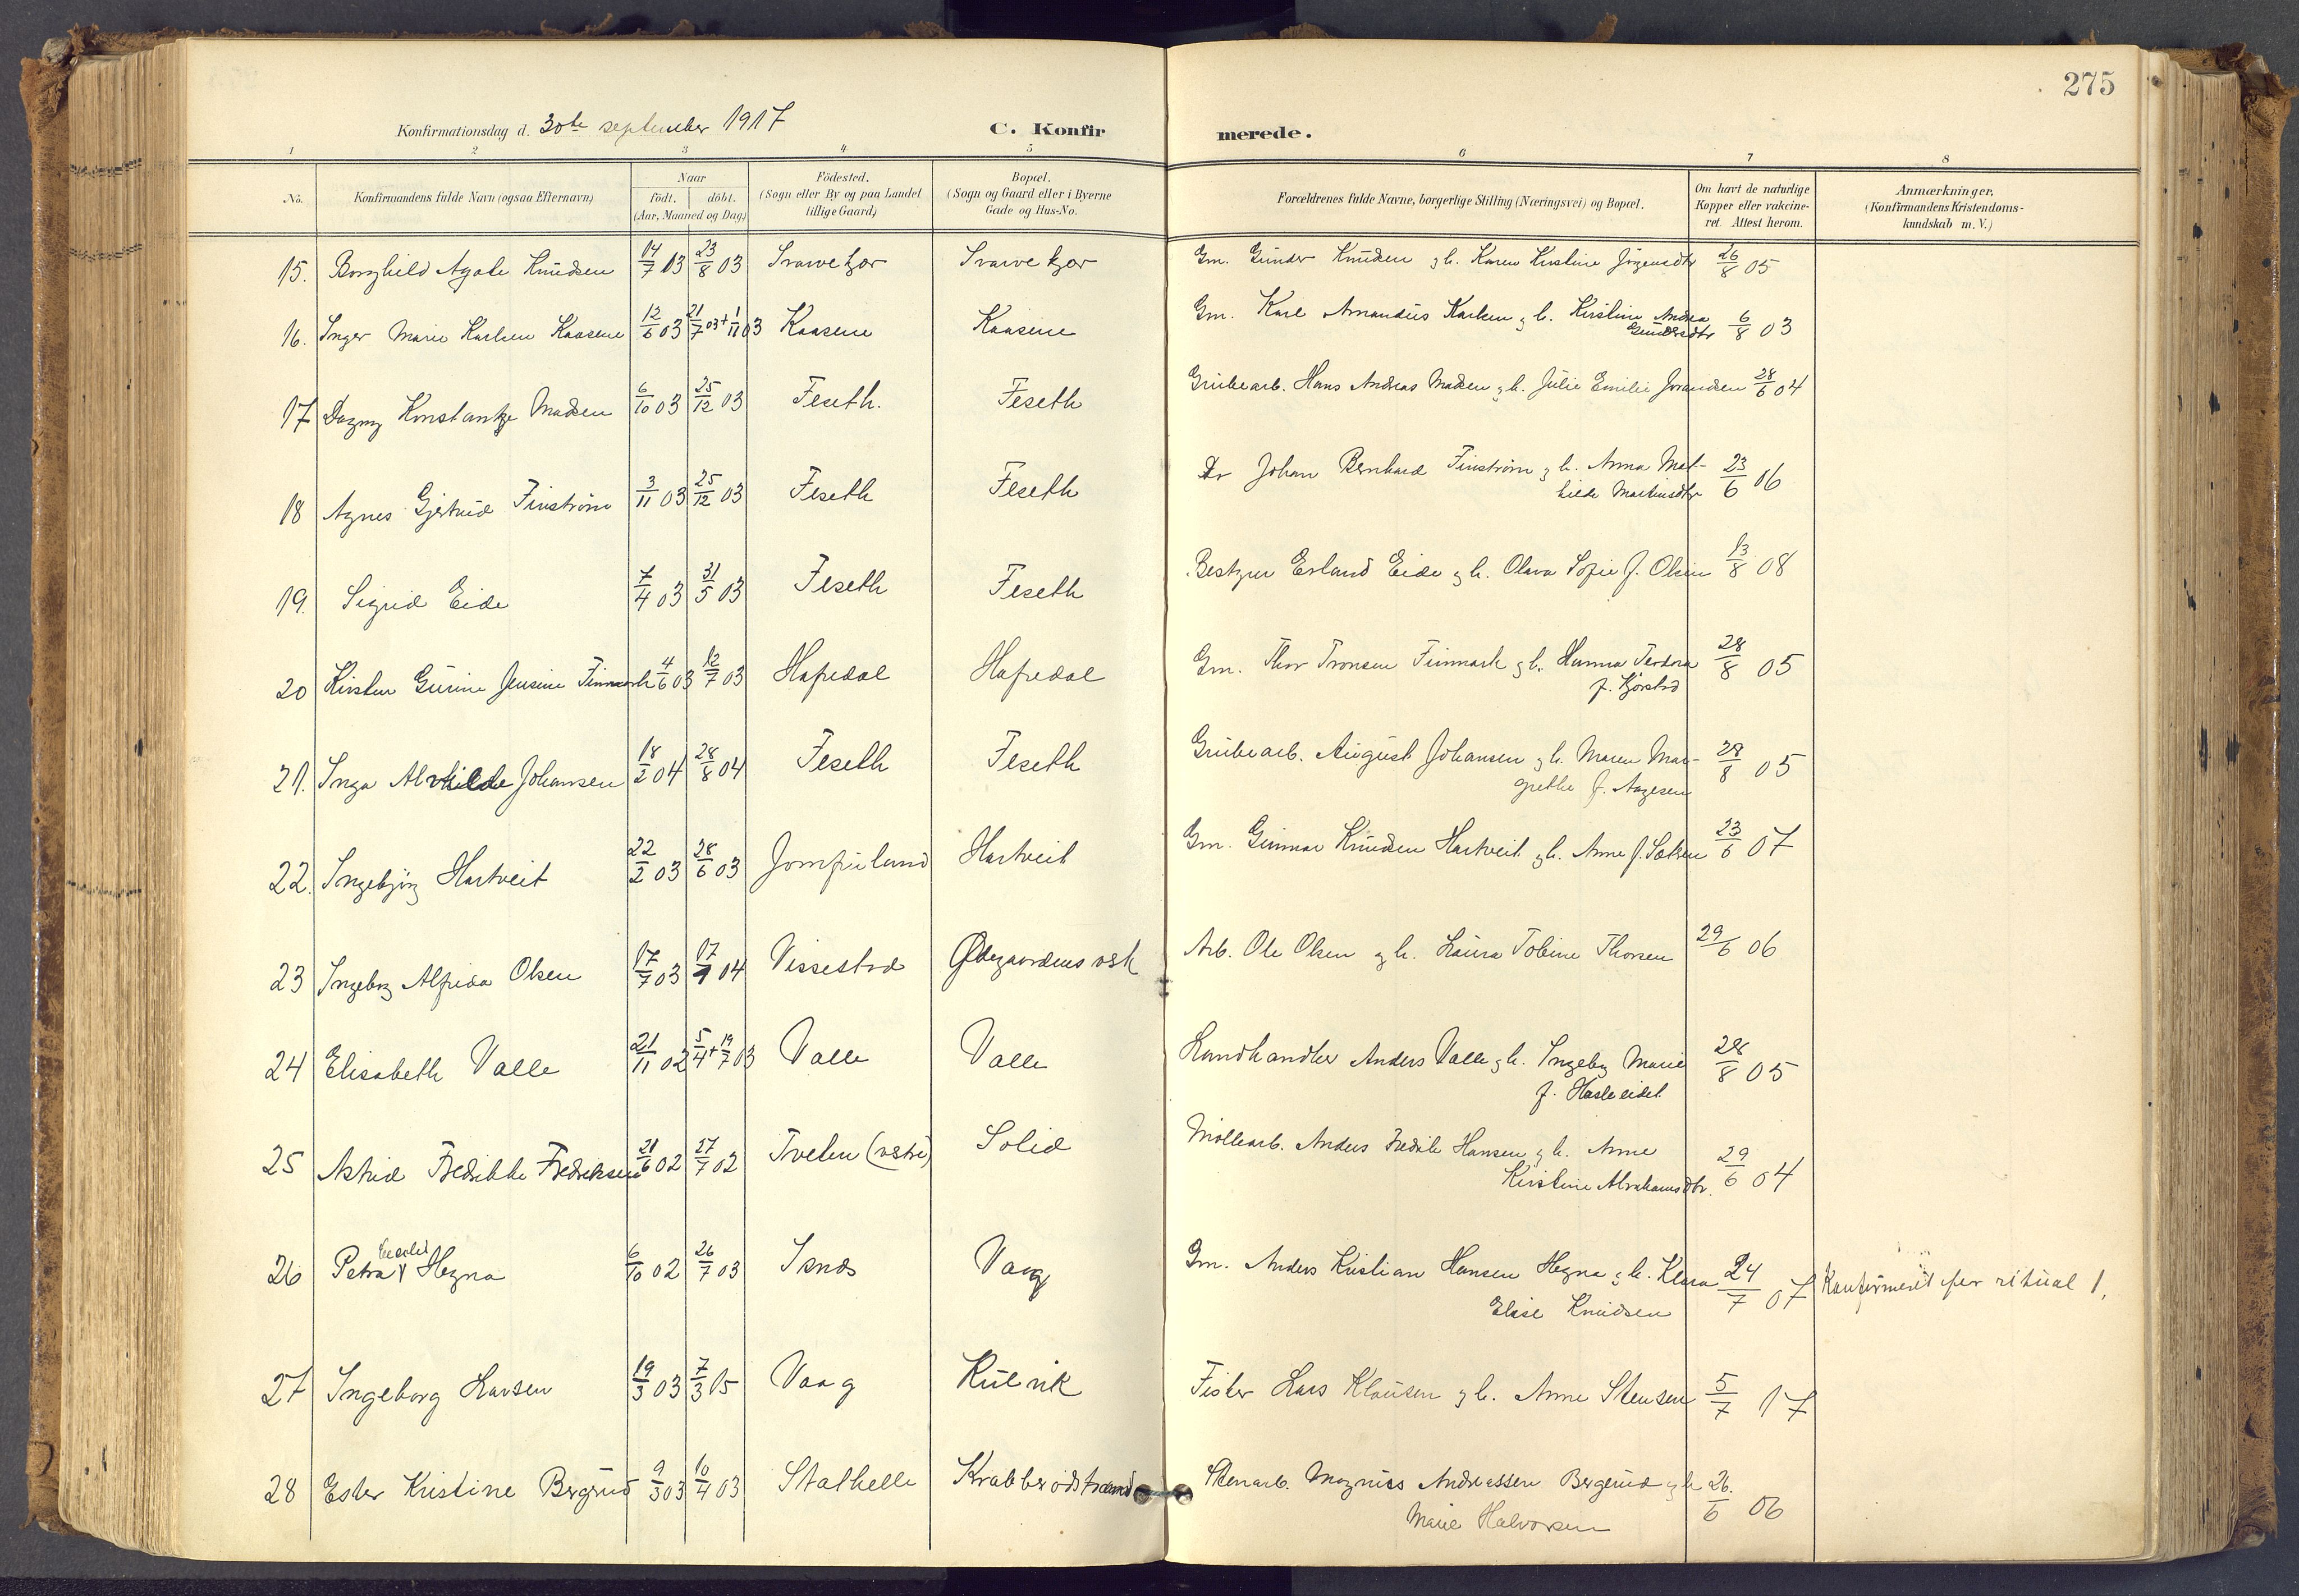 275
Konfirmationsdag d. 30te september 1917 C. Konfirmerede.
1 2 3 4 5 6 7 8
No. Konfirmandens fulde Navn (ogsaa Efternavn) Naar födt. döbt. (Aar, Maaned og Dag) Födested. (Sogn eller By og paa Landet tillige Gaard) Bopæl. (Sogn og Gaard eller i Byerne Gade og Hus-No. Forældrenes fulde Navne, borgerlige Stilling (Næringsvei) og Bopæl. Om havt de naturlige Kopper eller vakcineret. Attest herom. Anmærkninger, (Konfirmandens Kristendomskundskab m. V.)
15. Borghild Agate Knudsen 14/7 03 23/8 03 Gm. Gunder Knudsen & h. Karen Kristine Jörgensdtr 26/8 05
16. Inger Marie Karlsen Kaasene 12/6 03 21/7 03 + 1/11 03 Kaasene Kaasene Gm. Karl Amandus Karlsen & h. Kirstine Andrea
Gundersdtr 6/8 03
17 Dagny Konstantse Madsen 6/10 03 25/12 03 Feseth. Feseth Grubearb. Hans Andreas Madsen & h. Julie Emilie 28/6 04
18 Agnes Gjertrud Finström 3/11 03 25/12 03 Feseth Feseth Johan Bernhard Finström & h. Anna Mat-
hilde Martinsdtr 23/6 06
19. Sigrid Eide 7/4 03 31/5 03 Feseth Feseth Bestyrer Erland Eide & h. Olava Sofie f. Olsen 13/8 08
20 Kirsten Gurine Jensine Finmark 4/6 03 12/7 03 Hafsdal Hafsdal Gm. Thor Tronsen Finmark & h. Hanna Teodora
f. Kjørstad 28/8 05
21. Inga Alvhilde Johansen 18/2 04 28/8 04 Feseth Feseth Grubearb. August Johansen & h. Maren Mar-
grethe f. Aagesen 28/8 05
22. Ingebjörg Hartveit 22/2 03 28/6 03 Jomfruland Hartveit Gm. Gunnar Knudsen Hartveit & h. Anne f. 23/6 07
23 Ingeborg Alfrida Olsen 17/7 03 04 Vissestad Ødegaardens verk Arb. Ole Olsen & h. Laura Tobine Thorsen 29/6 06
24 Elisabeth Valle 21/11 02 5/4 + 19/7 03 Valle Valle Landhandler Anders Valle & h. Ingeborg Marie
f. Hasleeidet 28/8 05
25 Astrid Fredrikke Fredriksen 21/6 02 27/7 02 Tveten (vestre) Solid Möllearb. Anders Fredrik Hansen & h. Anne
Kirstine Abrahamsdtr. 29/6 04
26 Petra Hegna 6/10 02 26/7 03 Isnes Vaag Gm. Anders Kristian Hansen Hegna & h. Klara
Elise Knudsen 24/7 07 Konfirmert per ritual 1.
27 Ingeborg Larsen 19/3 03 7/3 15 Vaag Kulvik Fisker Lars Klausen & h. Anne Stensen 5/7 17
28 Ester Kristine Bergrud 9/3 03 10/4 03 Stathelle Krabberödstrand Stenarb. Magnus Andreassen Bergrud & h
Marie Halvorsen 26/6 06